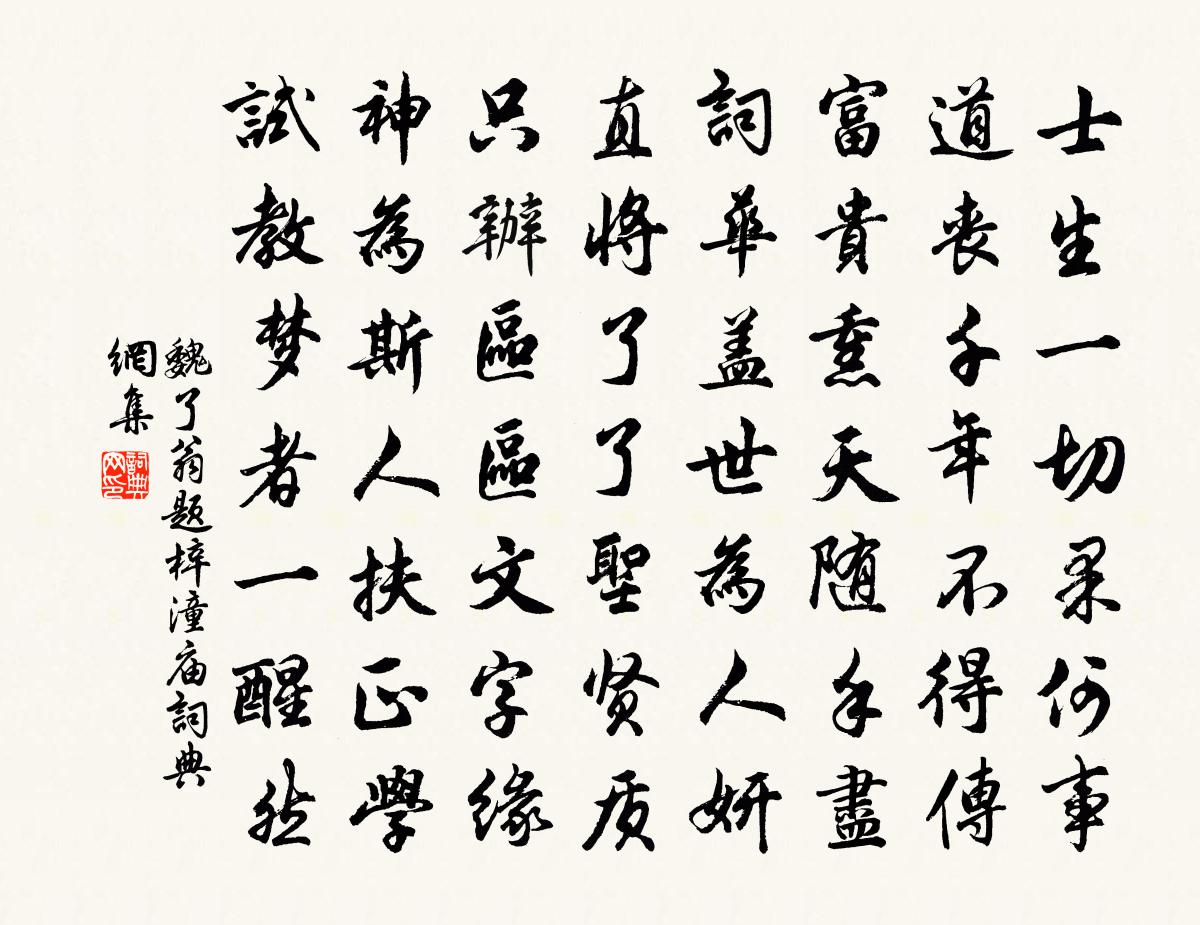 士生一切果何事
道丧千年不得傳
富貴熏天随手盡
詞華盖世為人妍
直將了了聖贤质
只辦區區文字缘
神為斯人扶正學
試教梦者一醒然
魏了翁题梓潼庙詞典
網集
詞典网印